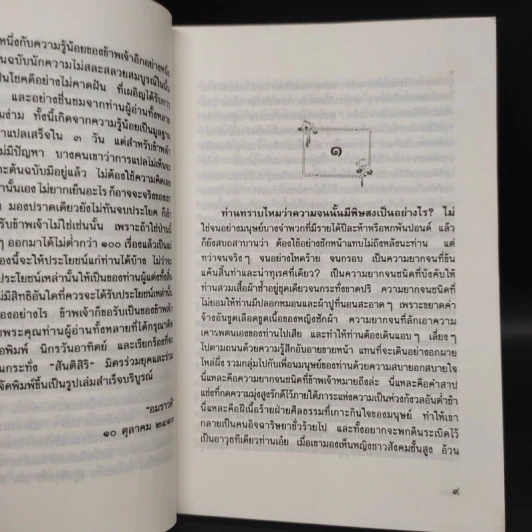 หนึ่งกับความรู้น้อยของข้าพเจ้าอีกอย่างหนึ่ง
นฉบับนักความไม่สละสลวยสมบูรณ์ในนั้น
ป็นโชคดีอย่างไม่คาดฝัน ที่เผอิญได้รับการ
และอย่างชื่นชมจากท่านผู้อ่านทั้งหลาย
มง่าม ทั้งนี้เกิดจากความรู้น้อยเป็นมูลฐาน
แปลเสร็จใน ๓ วัน แต่สำหรับข้าพเจ้า
ม่มีปัญหา บางคนเขาว่าการแปลไม่เห็นจะ
ะต้นฉบับมีอยู่แล้ว ไม่ต้องใช้ความคิดเลย
านั้นเอง ไม่ยากเย็นอะไร ก็อาจจะจริงของเขา
มองปราดเดียวยังไม่ทันจบประโยค ก็
รับข้าพเจ้าไม่ใช่เช่นนั้น เพราะถ้าใช่ป่านนี้
ๆ ออกมาได้ไม่ต่ำกว่า ๑๐๐ เรื่องแล้วเป็นแน่
องนี้จะให้ประโยชน์แก่ท่านได้บ้าง ไม่ว่าจะ
ะโยชน์เหล่านั้นให้เป็นของท่านผู้แต่งทั้งสิ้น
ม่มีสิทธิอันใดที่ควรจะได้รับประโยชน์เหล่านั้น
องอย่างไร ข้าพเจ้าก็ขอรับเป็นของข้าพเจ้า
พระคุณท่านผู้อ่านทั้งหลายที่ได้กรุณาติด
อพิมพ์ นิกรวันอาทิตย์ และเรียกร้องที่จะ
นกระทั่ง "สันติสิริ" มิตรร่วมยุคและร่วม
จัดพิมพ์ขึ้นเป็นรูปเล่มสำเร็จบริบูรณ์
"อมราวดี"
๑๐ ตุลาคม
๑
ท่านทราบไหมว่าความจนนั้นมีพิษสงเป็นอย่างไร? ไม่
ใช่จนอย่างมนุษย์บางจำพวกที่มีรายได้ปีละห้าหรือหกพันปอนด์ แล้ว
ก็ยังสบถสาบานว่า ต้องใช้อย่างชักหน้าแทบไม่ถึงหลังนะท่าน แต่
ทว่าจนจริงๆ จนอย่างโหดร้าย จนกรอบ เป็นความยากจนที่ข้น
แค้นสิ้นท่าและน่าทุเรศทีเดียว? เป็นความยากจนชนิดที่บังคับให้
ท่านสวมเสื้อผ้าซ้ำอยู่ชุดเดียวจนกระทั่งขาดปริ ความยากจนชนิดที่
ไม่ยอมให้ท่านมีปลอกหมอนและผ้าปูที่นอนสะอาดๆ เพราะขยาดค่า
จ้างอันขูดเลือดขูดเนื้อของหญิงซักผ้า ความยากจนที่ลักเอาความ
เคารพตนเองของท่านไปเสีย และทำให้ท่านต้องเดินแอบๆ เลี่ยงๆ
ไปตามถนนด้วยความรู้สึกอับอายขายหน้า แทนที่จะเดินอย่างอกผาย
ไหล่ผึ่ง รวมกลุ่มไปกับเพื่อนมนุษย์ของท่านด้วยความสบายอกสบายใจ
นี่แหละคือความยากจนชนิดที่ข้าพเจ้าหมายถึงล่ะ นี่แหละคือคำสาป
แช่งที่กดความมุ่งสูงรักดีไว้ภายใต้ภาระแห่งความเป็นห่วงกังวลอันต่ำช้า
นี่แหละคือฝีเนื้อร้ายฝ่ายศีลธรรมที่เกาะกินใจของมนุษย์ ทำให้เขา
กลายเป็นคนอิจฉาริษยาชั่วร้ายไป และทั้งอยากจะพกดินระเบิดไว้
เป็นอาวุธทีเดียวท่านเอ๋ย เมื่อเขามองเห็นหญิงชาวสังคมชั้นสูง อ้วน
๙